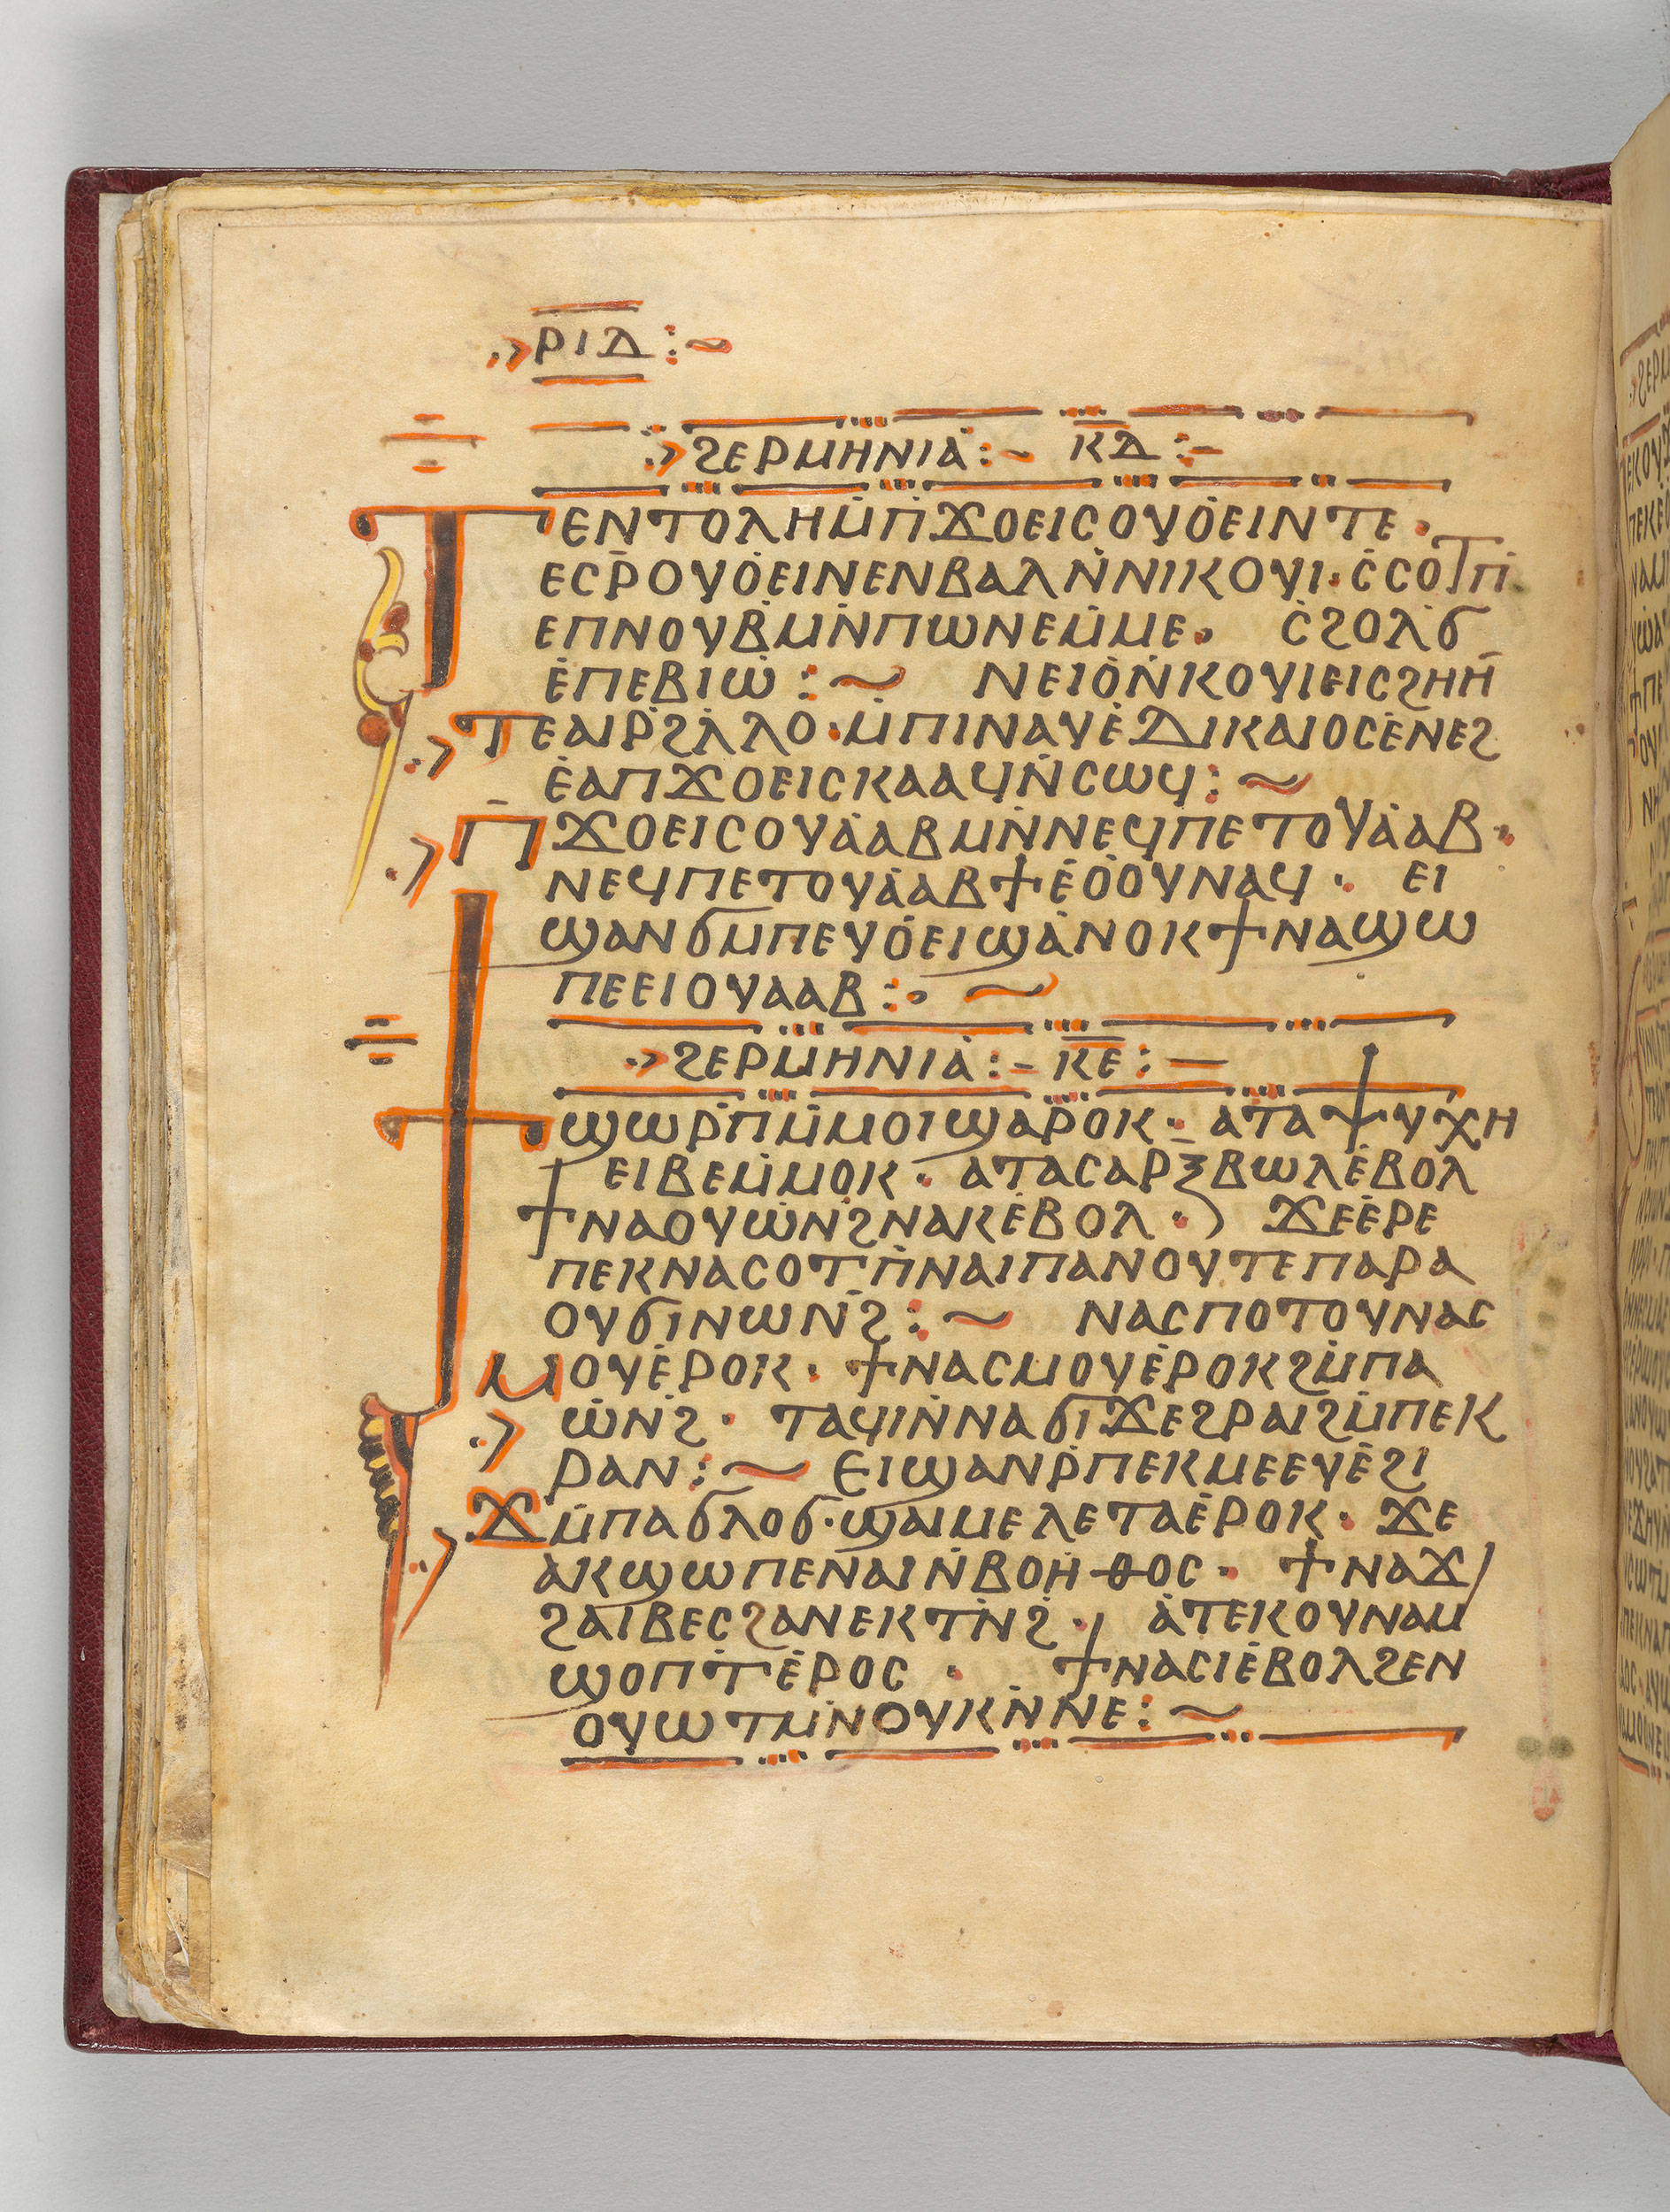 ⲣⲓⲇ
ϩⲉⲣⲙⲏⲛⲓⲁ:~ ⲕ̅ⲇ̅:-
ⲧⲉⲛⲧⲟⲗⲏⲙ̇ⲡ̇ϫⲟⲉⲓⲥⲟⲩⲟ̇ⲉⲓⲛⲧⲉ·
ⲉⲥⲣ̇ⲟⲩⲟ̇ⲉⲓⲛⲉⲛⲃⲁⲗⲛ̇ⲛⲓⲕⲟⲩⲓ·ⲥ̇ⲥⲟⲧⲡ̇
ⲉⲡⲛⲟⲩⲃ̇ⲙⲛ̇ⲡⲱⲛⲉⲙ̇ⲙⲉ· ⲥ̇ϩⲟⲗϭ
ⲉ̇ⲡⲉⲃⲓⲱ̇:~ ⲛⲉⲓⲟ̇ⲛ̇ⲕⲟⲩⲓⲉⲓⲥϩⲏⲏ̅
ⲧⲉⲁⲓⲣ̇ϩⲗ̇ⲗⲟ·ⲙ̇ⲡⲓⲛⲁⲩⲉ̇ⲇⲓⲕⲁⲓⲟⲥⲉ̇ⲛⲉϩ
ⲉ̇ⲁⲡϫⲟⲉⲓⲥⲕⲁⲁϥⲛ̇ⲥⲱϥ:~
ⲡϫⲟⲉⲓⲥⲟⲩⲁ̇ⲁⲃⲙⲛ̇ⲛⲉϥⲡⲉⲧⲟⲩⲁ̇ⲁⲃ·
ⲛⲉϥⲡⲉⲧⲟⲩⲁ̇ⲁⲃϯⲉ̇ⲟ̇ⲟⲩⲛⲁϥ· ⲉⲓ
ϣⲁⲛϭⲙⲡⲉⲩⲟ̇ⲉⲓϣⲁ̇ⲛⲟⲕϯⲛⲁϣⲱ
ⲡⲉⲉⲓⲟⲩⲁⲁⲃ:· ~
ϩⲉⲣⲙⲏⲛⲓⲁ̇:- ⲕ̅ⲉ̅:-
ϯϣⲱⲣ̇ⲡⲙ̇ⲙⲟⲓϣⲁⲣⲟⲕ· ⲁⲧⲁⲯⲩⲭⲏ
ⲉⲓⲃⲉⲙ̇ⲙⲟⲕ· ⲁⲧⲁⲥⲁⲣⲝⲃⲱⲗⲉ̇ⲃⲟⲗ
ϯⲛⲁⲟⲩⲱ̇ⲛ̇ϩⲛⲁⲕⲉ̇ⲃⲟⲗ· ϫⲉⲉ̇ⲣⲉ
ⲡⲉⲕⲛⲁⲥⲟⲧⲡ̇ⲛⲁⲓⲡⲁⲛⲟⲩⲧⲉⲡⲁⲣⲁ
ⲟⲩϭⲓⲛⲱⲛ̇ϩ:~ ⲛⲁⲥⲡⲟⲧⲟⲩⲛⲁⲥ
ⲙⲟⲩⲉ̇ⲣⲟⲕ· ϯⲛⲁⲥⲙⲟⲩⲉ̇ⲣⲟⲕϩⲙ̇ⲡⲁ
ⲱ̇ⲛ̇ϩ· ⲧⲁϥⲓⲛ̇ⲛⲁϭⲓϫⲉϩⲣⲁⲓϩⲙ̇ⲡⲉⲕ
ⲣⲁⲛ:~ ⲉⲓϣⲁⲛⲣ̇ⲡⲉⲕⲙⲉⲉⲩⲉ̇ϩⲓ
ϫⲙ̇ⲡⲁϭⲗⲟϭ·ϣⲁⲓⲙⲉⲗⲉⲧⲁⲉ̇ⲣⲟⲕ· ϫⲉ
ⲁ̇ⲕϣⲱⲡⲉⲛⲁⲓⲛ̇ⲃⲟⲏ̇ⲑⲟⲥ· ϯⲛⲁϫⲓ
ϩⲁⲓ̇ⲃⲉⲥϩⲁⲛⲉⲕⲧⲛ̇ϩ· ⲁ̇ⲧⲉⲕⲟⲩⲛⲁⲙ
ϣⲟⲡⲧ̇ⲉ̇ⲣⲟⲥ · ϯⲛⲁⲥⲓⲉ̇ⲃⲟⲗϩⲉⲛ
ⲟⲩⲱⲧⲙⲛⲟⲩⲕⲛ̇ⲛⲉ:~